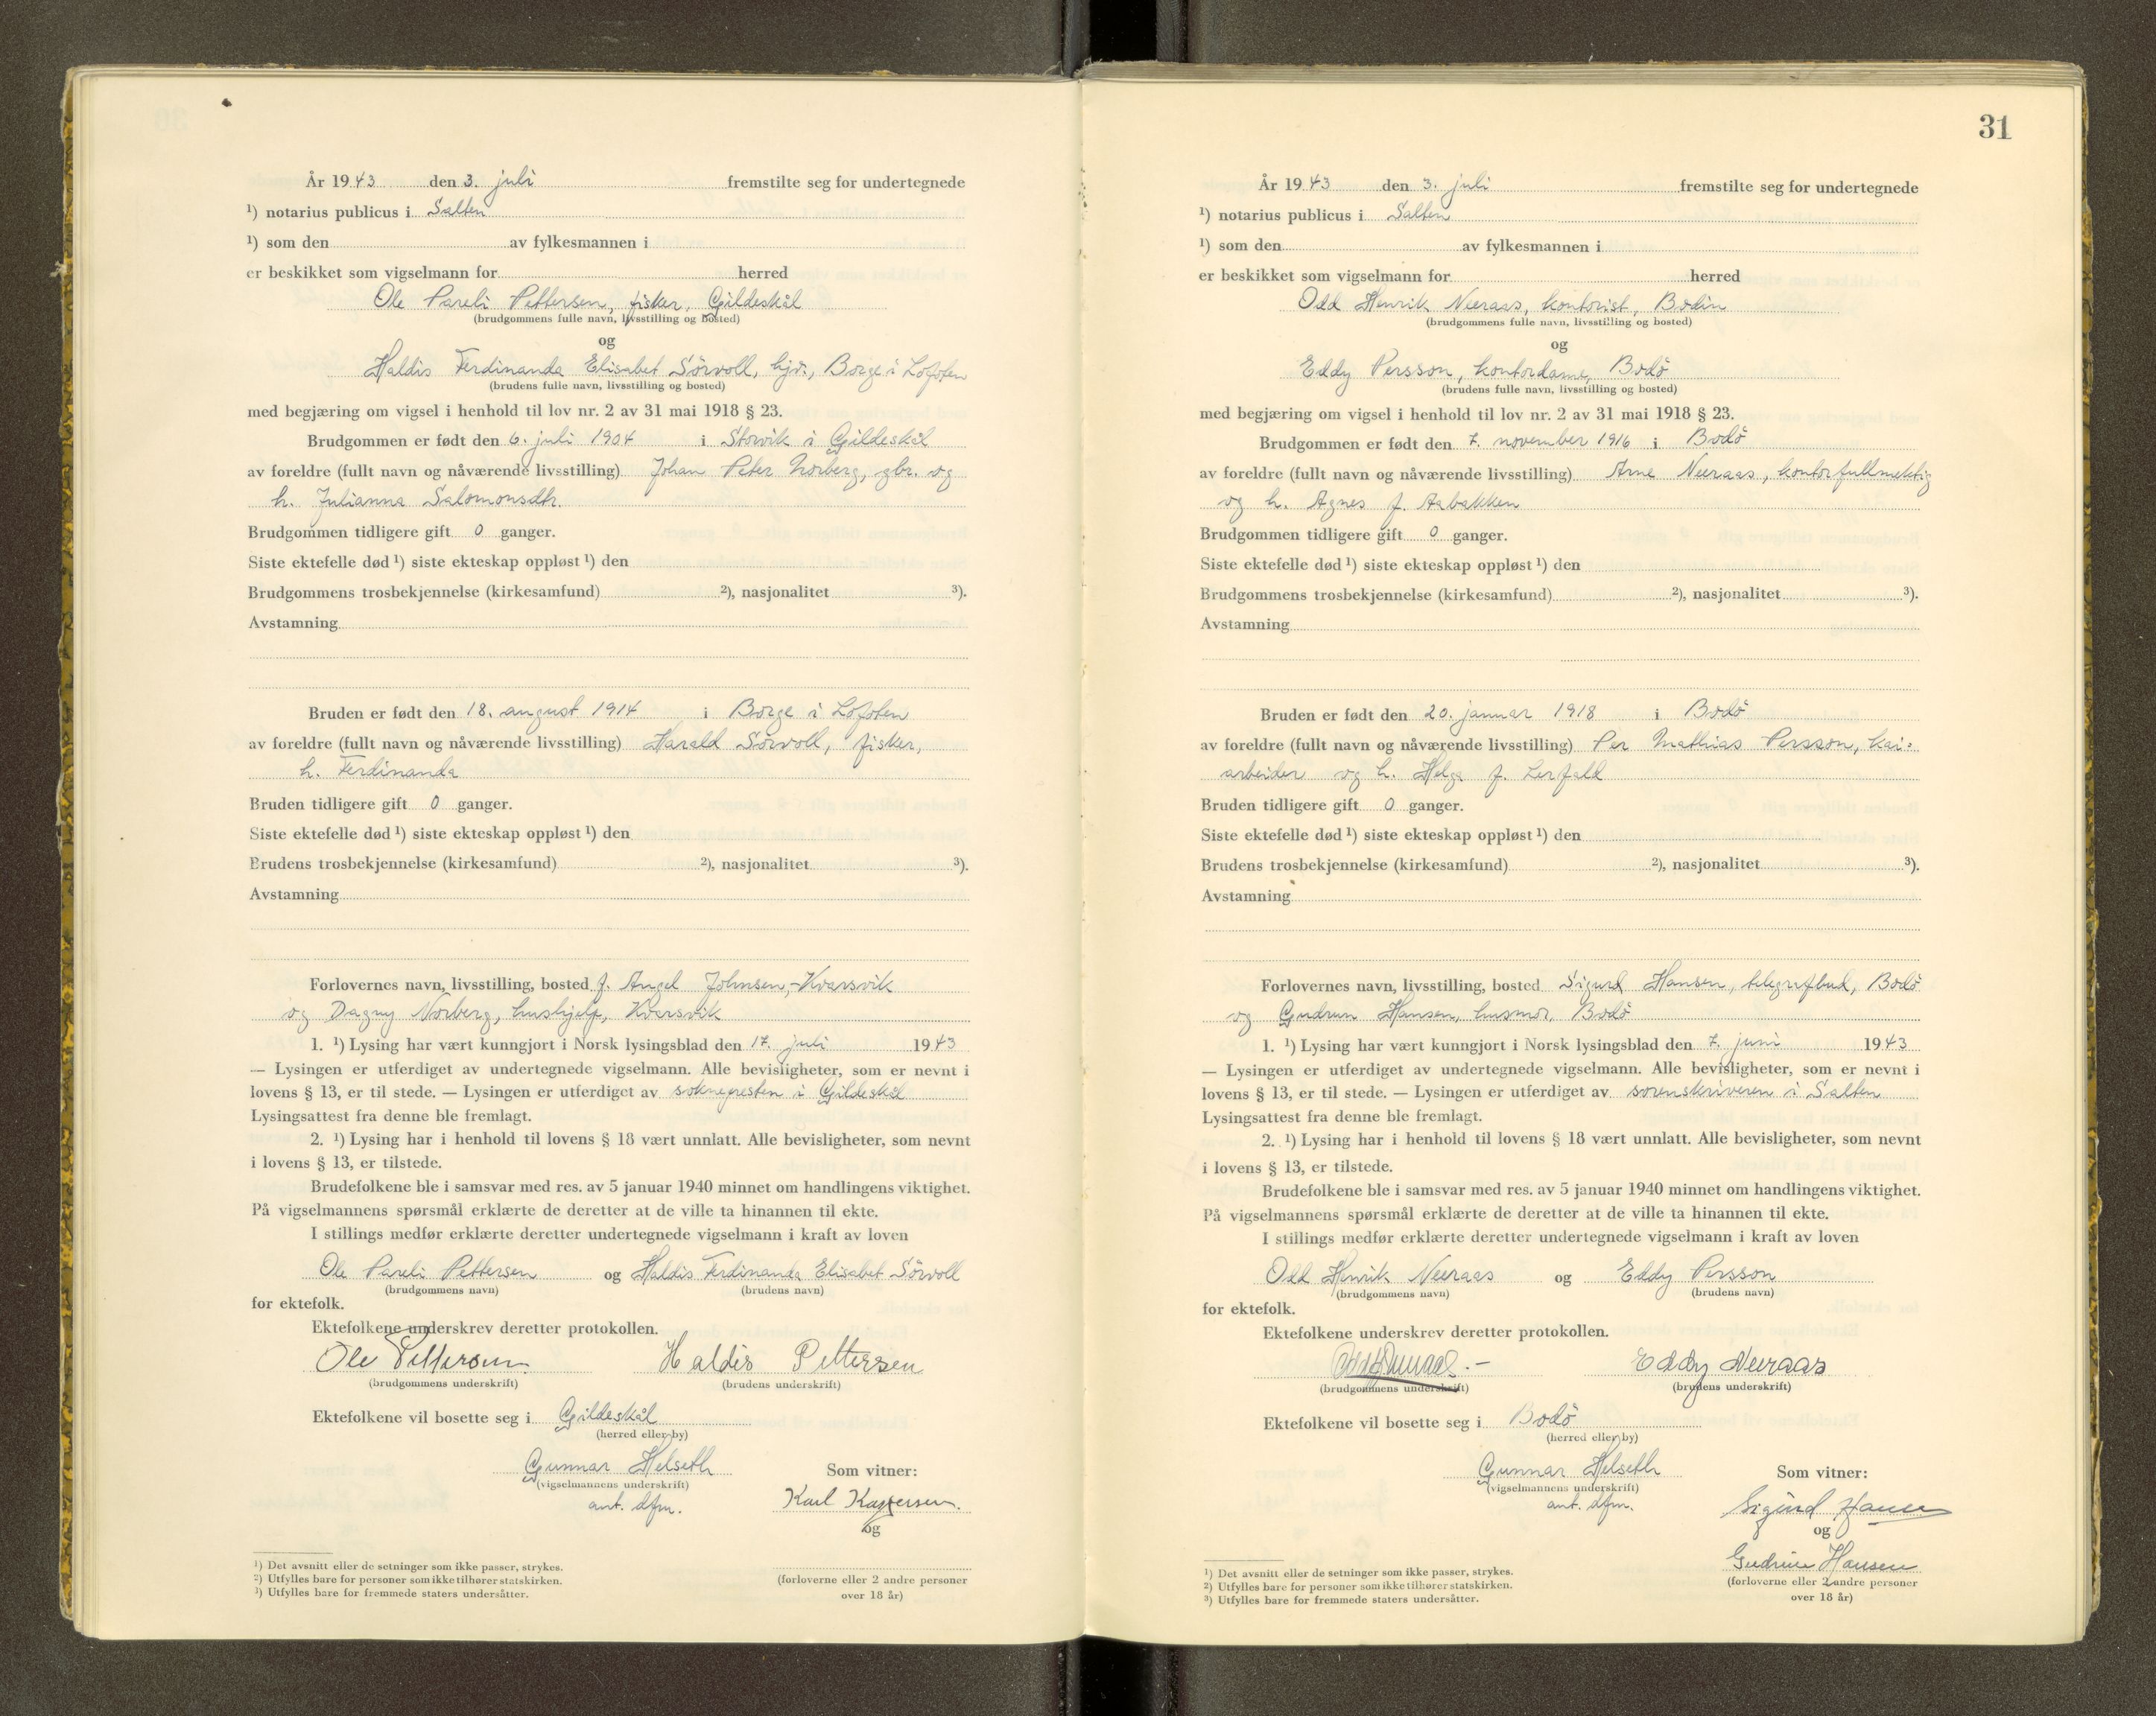 År 1943 den 3. juli fremstilte seg for undertegnede
¹) notarius publicus i Salten
¹) som den av fylkesmannen i
er beskikket som vigselmann for herred
Ole Pareli Pettersen, fisker, Gildeskål
(brudgommens fulle navn, livsstilling og bosted)
og
Haldis Ferdinanda Elisabet Sörvoll, hjv., Borge i Lofoten
(brudens fulle navn, livsstilling og bosted)
med begjæring om vigsel i henhold til lov nr. 2 av 31 mai 1918 § 23.
Brudgommen er født den 6. juli 1904 i Storvik i Gildeskål
av foreldre (fullt navn og nåværende livsstilling) Johan Peter Norberg, gbr. og
h. Julianna Salomonsdtr.
Brudgommen tidligere gift 0 ganger.
Siste ektefelle død ¹) siste ekteskap oppløst ¹) den
Brudgommens trosbekjennelse (kirkesamfund) ²), nasjonalitet ³).
Avstamning
Bruden er født den 18. august 1914 i Borge i Lofoten
av foreldre (fullt navn og nåværende livsstilling) Harald Sörvoll, fisker,
h. Ferdinanda
Bruden tidligere gift 0 ganger.
Siste ektefelle død ¹) siste ekteskap oppløst ¹) den
Brudens trosbekjennelse (kirkesamfund) ²), nasjonalitet ³).
Avstamning
Forlovernes navn, livsstilling, bosted J. Angel Johnsen, Kvarsvik
og Dagny Norberg, hushjelp, Kvarsvik
1. ¹) Lysing har vært kunngjort i Norsk lysingsblad den 17. juli 1943
— Lysingen er utferdiget av undertegnede vigselmann. Alle bevisligheter, som er nevnt i
lovens § 13, er til stede. — Lysingen er utferdiget av soknepresten i Gildeskål
Lysingsattest fra denne ble fremlagt.
2. ¹) Lysing har i henhold til lovens § 18 vært unnlatt. Alle bevisligheter, som nevnt
i lovens § 13, er tilstede.
Brudefolkene ble i samsvar med res. av 5 januar 1940 minnet om handlingens viktighet.
På vigselmannens spørsmål erklærte de deretter at de ville ta hinannen til ekte.
I stillings medfør erklærte deretter undertegnede vigselmann i kraft av loven
Ole Pareli Pettersen og Haldis Ferdinanda Elisabet Sörvoll
(brudgommens navn) (brudens navn)
for ektefolk.
Ektefolkene underskrev deretter protokollen.
Ole Pettersen Haldis Pettersen
(brudgommens underskrift) (brudens underskrift)
Ektefolkene vil bosette seg i Gildeskål
(herred eller by)
Gunnar Helseth Som vitner:
(vigselmannens underskrift)
aut. dfm. Karl Kaspersen.
og
¹) Det avsnitt eller de setninger som ikke passer, strykes.
²) Utfylles bare for personer som ikke tilhører statskirken.
³) Utfylles bare for fremmede staters undersåtter.
(forloverne eller 2 andre personer
over 18 år)
31
År 1943 den 3. juli fremstilte seg for undertegnede
¹) notarius publicus i Salten
¹) som den av fylkesmannen i
er beskikket som vigselmann for herred
Odd Henrik Neeraas, kontorist, Bodin
(brudgommens fulle navn, livsstilling og bosted)
og
Eddy Persson, kontordame, Bodö
(brudens fulle navn, livsstilling og bosted)
med begjæring om vigsel i henhold til lov nr. 2 av 31 mai 1918 § 23.
Brudgommen er født den 7. november 1916 i Bodö
av foreldre (fullt navn og nåværende livsstilling) Arne Neeraas, kontorfullmektig
og h. Agnes f. Aabakken
Brudgommen tidligere gift 0 ganger.
Siste ektefelle død ¹) siste ekteskap oppløst ¹) den
Brudgommens trosbekjennelse (kirkesamfund) ²), nasjonalitet ³).
Avstamning
Bruden er født den 20. januar 1918 i Bodö
av foreldre (fullt navn og nåværende livsstilling) Per Mathias Persson, kai-
arbeider og h. Helga f. Lerfald
Bruden tidligere gift 0 ganger.
Siste ektefelle død ¹) siste ekteskap oppløst ¹) den
Brudens trosbekjennelse (kirkesamfund) ²), nasjonalitet ³).
Avstamning
Forlovernes navn, livsstilling, bosted Sigurd Hansen, telegrafbud, Bodö
og Gudrun Hansen, husmor, Bodö
1. ¹) Lysing har vært kunngjort i Norsk lysingsblad den 7. juni 1943
— Lysingen er utferdiget av undertegnede vigselmann. Alle bevisligheter, som er nevnt i
lovens § 13, er til stede. — Lysingen er utferdiget av sorenskriveren i Salten
Lysingsattest fra denne ble fremlagt.
2. ¹) Lysing har i henhold til lovens § 18 vært unnlatt. Alle bevisligheter, som nevnt
i lovens § 13, er tilstede.
Brudefolkene ble i samsvar med res. av 5 januar 1940 minnet om handlingens viktighet.
På vigselmannens spørsmål erklærte de deretter at de ville ta hinannen til ekte.
I stillings medfør erklærte deretter undertegnede vigselmann i kraft av loven
Odd Henrik Neeraas og Eddy Persson
(brudgommens navn) (brudens navn)
for ektefolk.
Ektefolkene underskrev deretter protokollen.
Eddy Neeraas
(brudgommens underskrift) (brudens underskrift)
Ektefolkene vil bosette seg i Bodö
(herred eller by)
Gunnar Helseth Som vitner:
(vigselmannens underskrift)
aut. dfm. Sigurd Hansen
og
Gudrun Hansen
¹) Det avsnitt eller de setninger som ikke passer, strykes.
²) Utfylles bare for personer som ikke tilhører statskirken.
³) Utfylles bare for fremmede staters undersåtter.
(forloverne eller 2 andre personer
over 18 år)